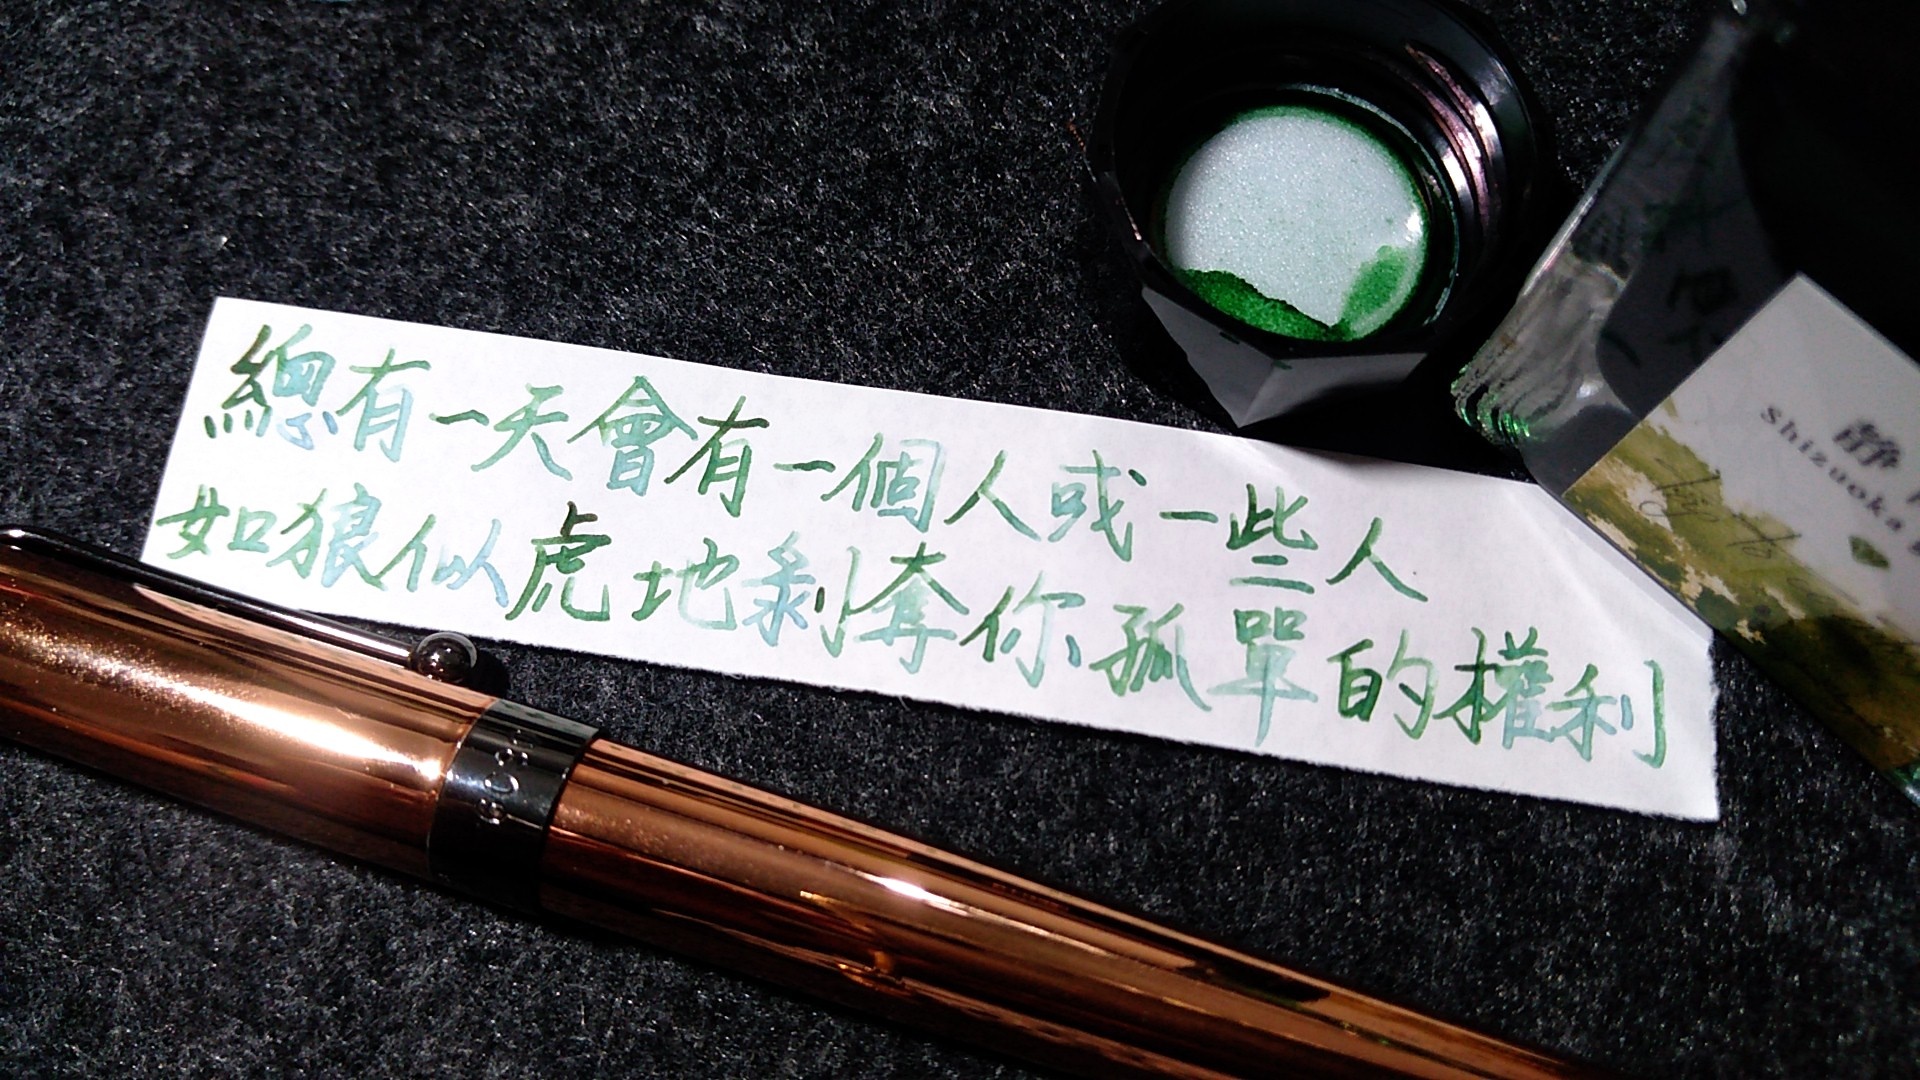 總有一天會有一個人或一些人
如狼似虎地剥奪你孤單的權利
静
shizuoka